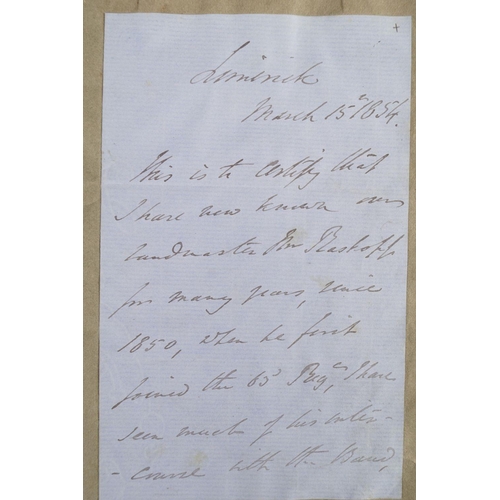 Limerick
March 15th 1854.
This is to certify that
I have now known our
bandmaster Mr
for many years, since
1850, when he first
joined the 63 Regt, I have
seen much of his inter-
-course with the Band,